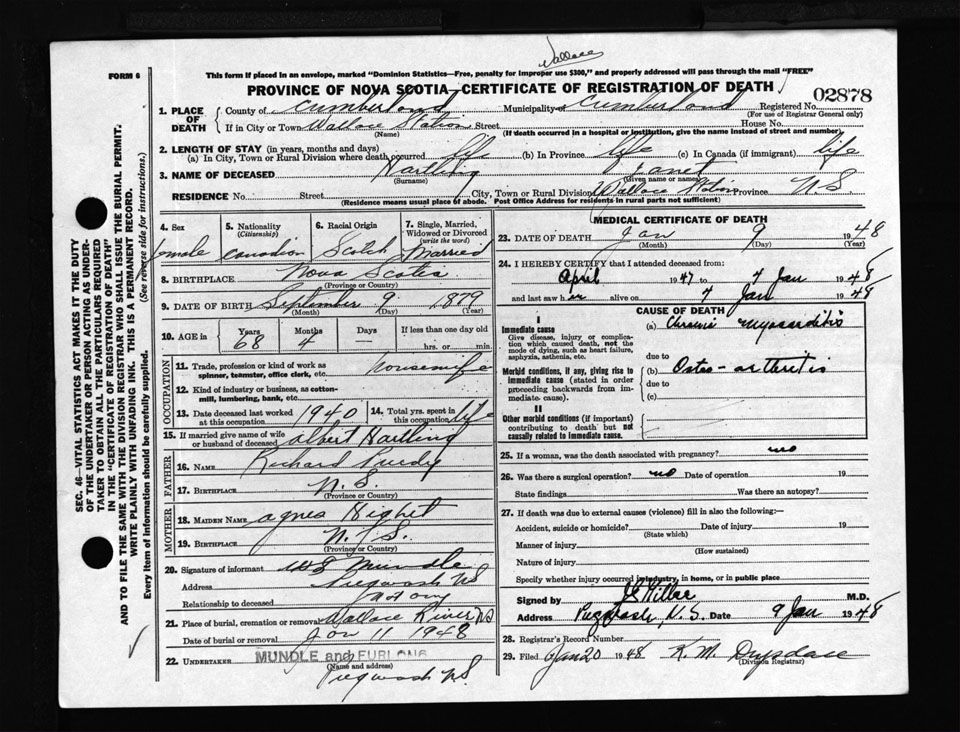 Wallace
FORM 6
This form if placed in an envelope, marked "Dominion Statistics—Free, penalty for improper use $300," and properly addressed will pass through the mail "FREE"
PROVINCE OF NOVA SCOTIA—CERTIFICATE OF REGISTRATION OF DEATH
02878
1. PLACE OF DEATH
County of Cumberland Municipality of Cumberland Registered No.
(For use of Registrar General only)
If in City or Town Wallace Station Street House No.
(Name) (If death occurred in a hospital or institution, give the name instead of street and number)
2. LENGTH OF STAY (in years, months and days)
(a) In City, Town or Rural Division where death occurred life (b) In Province life (c) In Canada (if immigrant) life
3. NAME OF DECEASED Hartling Janet
(Surname) (Given name or names)
RESIDENCE No. Street City, Town or Rural Division Wallace Station Province N.S.
(Residence means usual place of abode. Post Office Address for residents in rural parts not sufficient)
4. Sex
female
5. Nationality
(Citizenship)
Canadian
6. Racial Origin
Scotch
7. Single, Married, Widowed or Divorced
(write the word)
Married
8. BIRTHPLACE Nova Scotia
(Province or Country)
9. DATE OF BIRTH September 9 1879
(Month) (Day) (Year)
10. AGE in
Years Months Days If less than one day old
68 4 — hrs. or min.
OCCUPATION
11. Trade, profession or kind of work as spinner, teamster, office clerk, etc. housewife
12. Kind of industry or business, as cotton-mill, lumbering, bank, etc.
13. Date deceased last worked at this occupation 1940
14. Total yrs. spent in this occupation life
15. If married give name of wife or husband of deceased Albert Hartling
FATHER
16. NAME Richard Purdy
17. BIRTHPLACE N.S.
(Province or Country)
MOTHER
18. MAIDEN NAME Agnes Hight
19. BIRTHPLACE N.S.
(Province or Country)
20. Signature of informant Mundle
Address Pugwash NS
Relationship to deceased
21. Place of burial, cremation or removal Wallace River NS
Date of burial or removal Jan 11 1948
22. UNDERTAKER MUNDLE and FURLONG
(Name and address)
Pugwash NS
MEDICAL CERTIFICATE OF DEATH
23. DATE OF DEATH Jan 9 1948
(Month) (Day) (Year)
24. I HEREBY CERTIFY that I attended deceased from:
April 1947 to 7 Jan 1948
and last saw her alive on 7 Jan 1948
CAUSE OF DEATH
I
Immediate cause
Give disease, injury or complication which caused death, not the mode of dying, such as heart failure, asphyxia, asthenia, etc.
(a) Chronic Myocarditis
due to
Morbid conditions, if any, giving rise to immediate cause (stated in order proceeding backwards from immediate cause).
(b) Osteo-arthritis
due to
(c)
II
Other morbid conditions (if important) contributing to death but not causally related to immediate cause.
25. If a woman, was the death associated with pregnancy? no
26. Was there a surgical operation? no Date of operation 19
State findings Was there an autopsy?
27. If death was due to external causes (violence) fill in also the following:—
Accident, suicide or homicide? Date of injury 19
(State which)
Manner of injury
(How sustained)
Nature of injury
Specify whether injury occurred in industry, in home, or in public place
Signed by M.D.
Address Pugwash, N.S. Date 9 Jan 1948
28. Registrar's Record Number
29. Filed Jan 20 1948 K. M. Drysdale
(Division Registrar)
SEC. 46—VITAL STATISTICS ACT MAKES IT THE DUTY
OF THE UNDERTAKER OR PERSON ACTING AS UNDER-
TAKER TO OBTAIN ALL THE PARTICULARS REQUIRED
IN THE "CERTIFICATE OF REGISTRATION OF DEATH"
AND TO FILE THE SAME WITH THE DIVISION REGISTRAR WHO SHALL ISSUE THE BURIAL PERMIT.
WRITE PLAINLY WITH UNFADING INK. THIS IS A PERMANENT RECORD.
Every item of information should be carefully supplied. (See reverse side for instructions.)